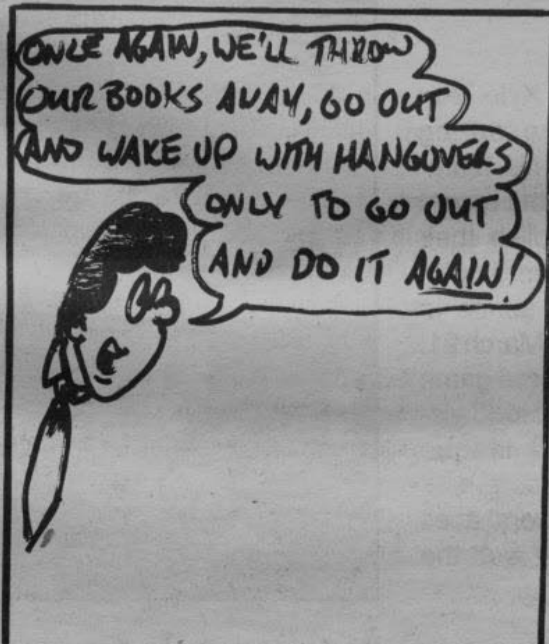 ONCE AGAIN, WE'LL THROW
OUR BOOKS AWAY, GO OUT
AND WAKE UP WITH HANGOVERS
ONLY TO GO OUT
AND DO IT AGAIN!
March 21